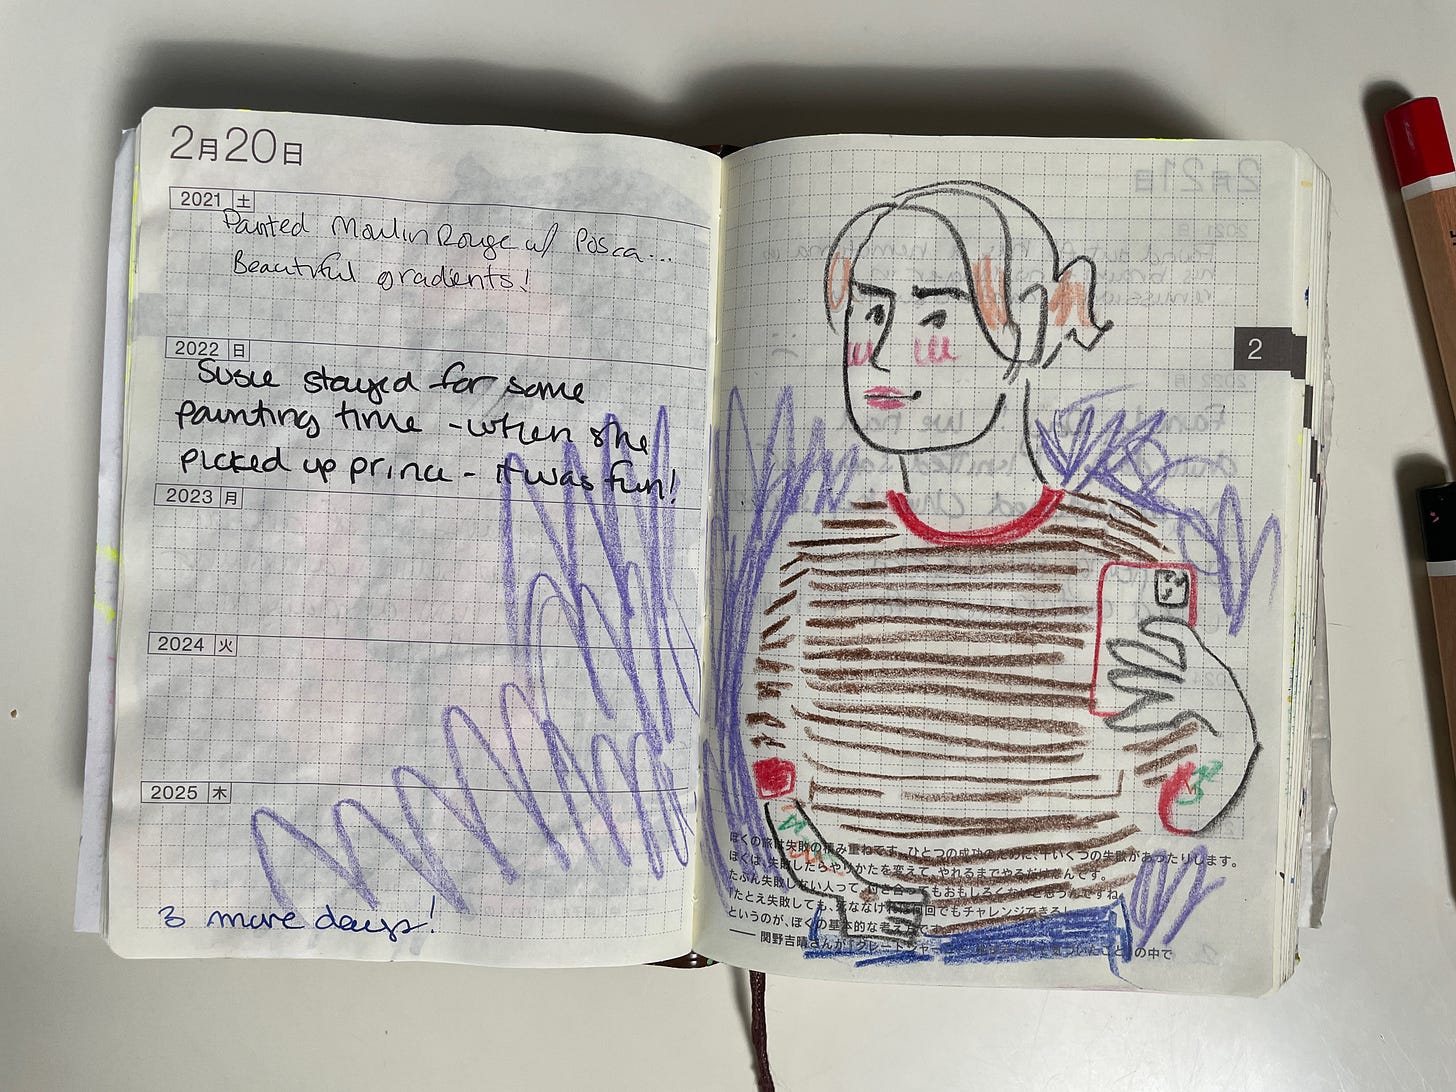 2月20日
2021 土
Painted Moulin Rouge w/ Posca...
Beautiful gradients!
2022 日
Susie stayed for some
painting time - when she
picked up prince - it was fun!
2023 月
2024 火
2025 木
3 more days!
2
ぼくの旅は失敗の積み重ねです。ひとつの成功のために、十いくつの失敗があったりします。
ぼくは、失敗したらやりかたを変えて、やれるまでやるだけなんです。
たぶん失敗しない人って、付き合ってもおもしろくないと思うんですね。
「たとえ失敗しても、死ななければ何回でもチャレンジできる」
というのが、ぼくの基本的な考えです。
—— 関野吉晴さんが『グレートジャーニー の中で